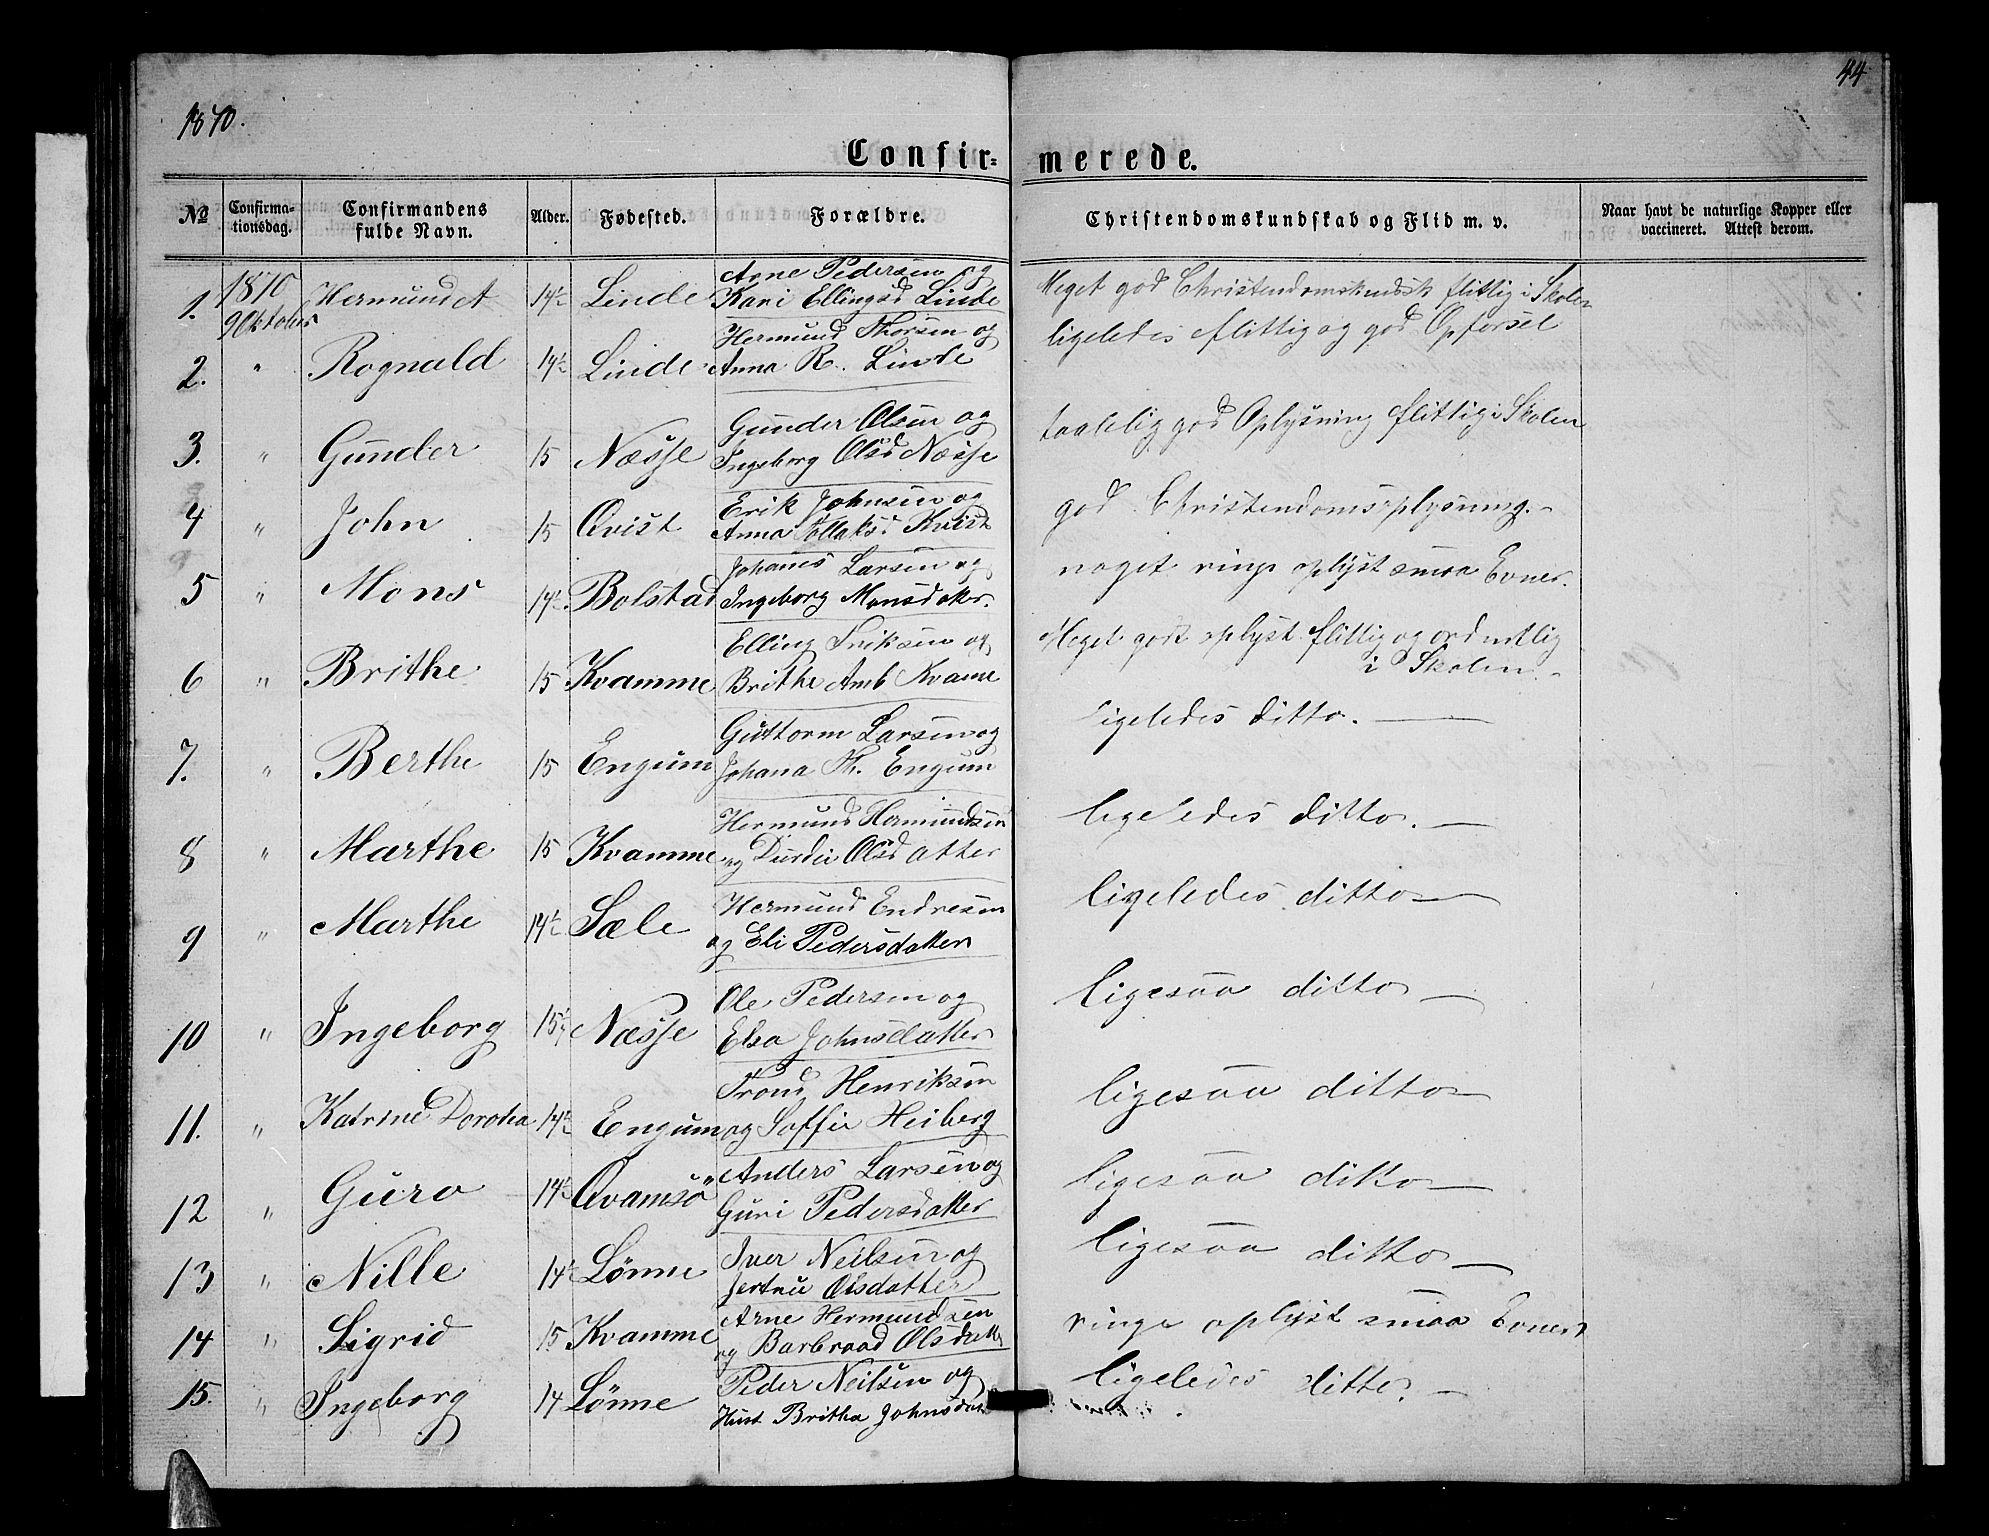 1870.
44
Confir=
merede.
No
Confirma-
tionsdag.
Confirmandens
fulde Navn.
Alder.
Fødested.
Forældre.
Christendomskundskab og Flid m. v.
Naar havt de naturlige Kopper eller
vaccineret. Attest derom.
1. 1870 9 Oktober Hermund A 14½ Linde Arne Pedersen og
Kari Ellingsd Linde
Meget god flittig i Skolen
2. " Rognald 14½ Linde Hermund Thorsen og
Anna R. Linde
ligeledes flittig og god Opførsel
3. " Gunder 15 Næsse Gunder Olsen og
Ingeborg Olsd Næsse
taalelig god Oplysning flittig i Skolen
4 " John 15 Qvist Erik Johnsen og
Anna Kvist
god Christendomsoplysning. -
5 " Mons 14½ Bolstad Johanes Larsen og
Ingeborg Monsdoter.
noget ringe oplyst smaa Evner.
6 " Brithe 15 Kvamme Elling Eriksen og
Brithe Kvame
Meget godt oplyst flittig og ordentlig
i Skolen. -
7. " Berthe 15 Engum Guttorm Larsen og
Johana Th. Engum
ligeledes ditto. —
8 " Marthe 15 Kvamme Hermund Hermundsen
og Durdei Olsdatter
ligeledes ditto. —
9 " Marthe 14½ Sæle Hermund Endresen
og Eli Pedersdatter
ligeledes ditto —
10 " Ingeborg 15¼ Næsse Ole Pedersen og
Elsa Johnsdatter
ligesaa ditto —
11. " Katrine Dorothea 14½ Engum Trond Henriksen
og Soffie Heiberg
ligesaa ditto —
12 " Guro 14½ Qvamsö Anders Larsen og
Guri Pedersdatter
ligesaa ditto —
13 " Nille 14½ Lønne Iver Neilsen og
Jertru Olsdatter
ligesaa ditto —
14 " Sigrid 15 Kvamme Arne Hermundsen
og Barbraad Olsdatt
ringe oplyst smaa Evner
15. " Ingeborg 14 Lønne Peder Neilsen og
Hust Britha Johnsdat
ligeledes ditto. —